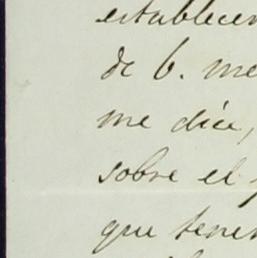 establecer
de b. me
me dice,
sobre el
que tener